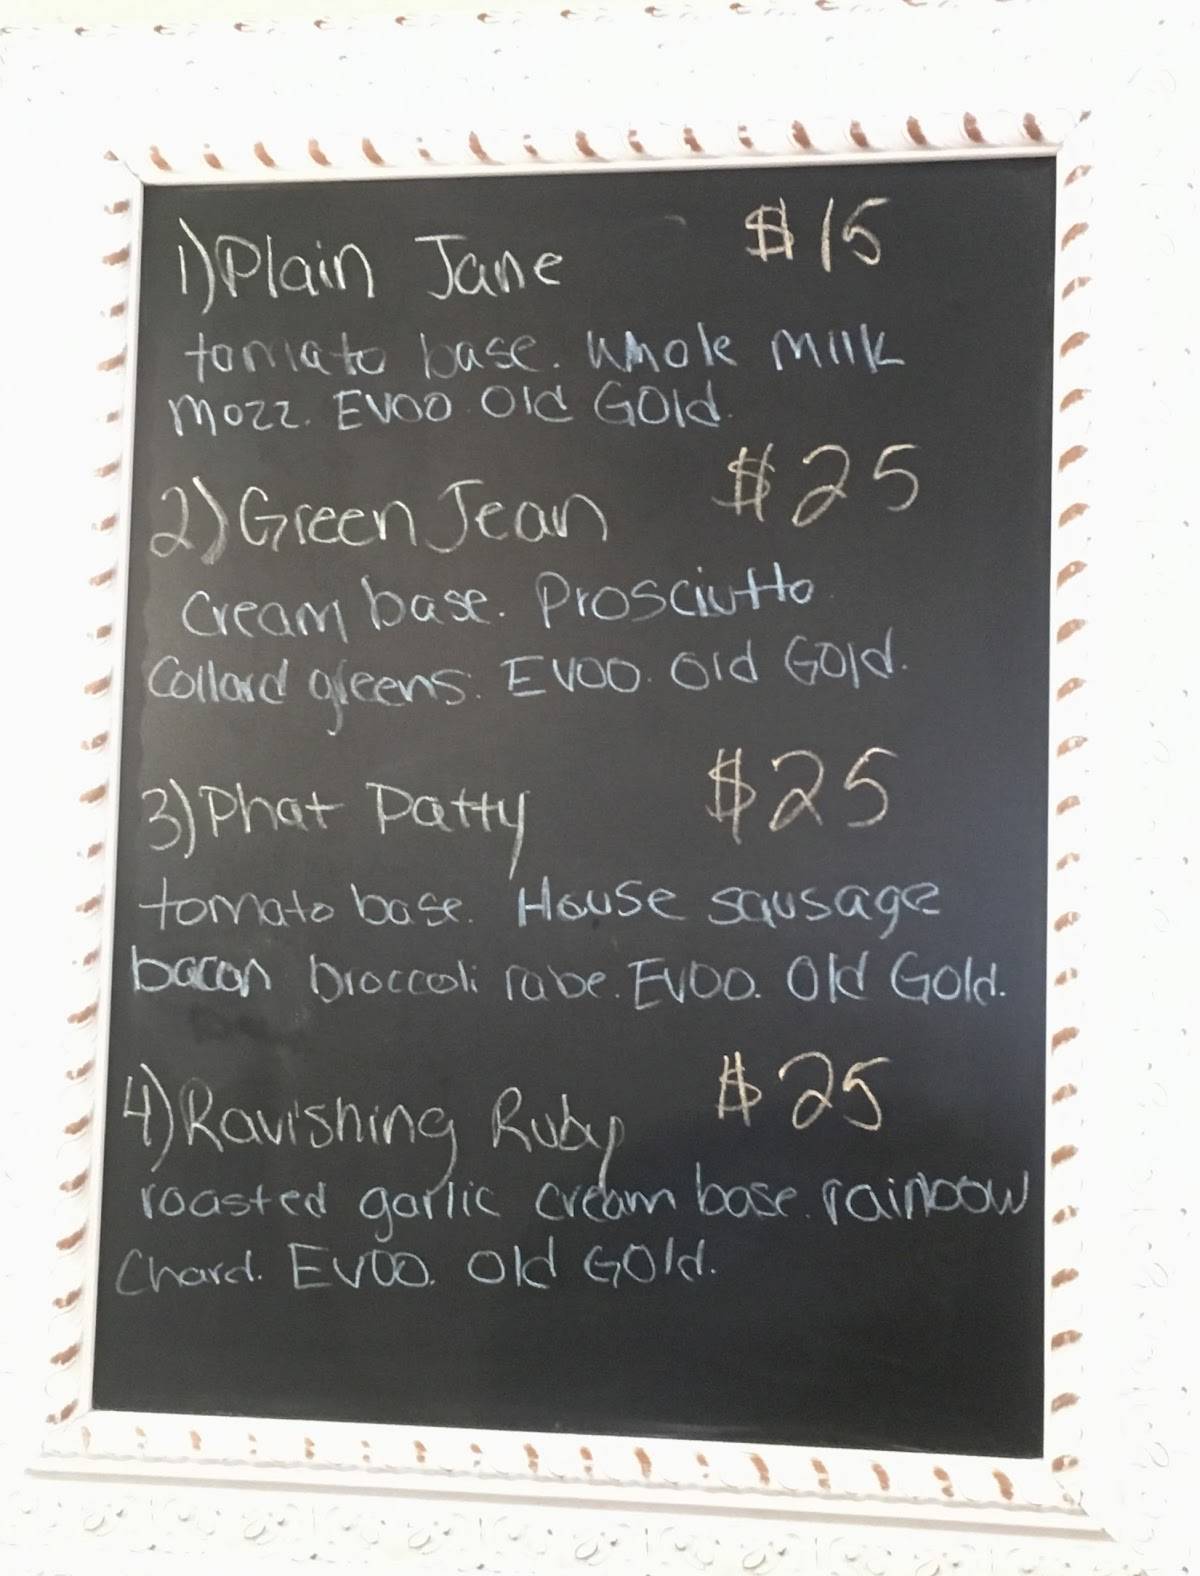 1) Plain Jane $15
tomato base. Whole Milk
Mozz. EVOO. Old Gold.
2) Green Jean $25
Cream base. Prosciutto.
Collard greens. EVOO. Old Gold.
3) Phat Patty $25
tomato base. House sausage
bacon broccoli rabe. EVOO. Old Gold.
4) Ravishing Ruby $25
roasted garlic cream base. rainbow
Chard. EVOO. Old Gold.